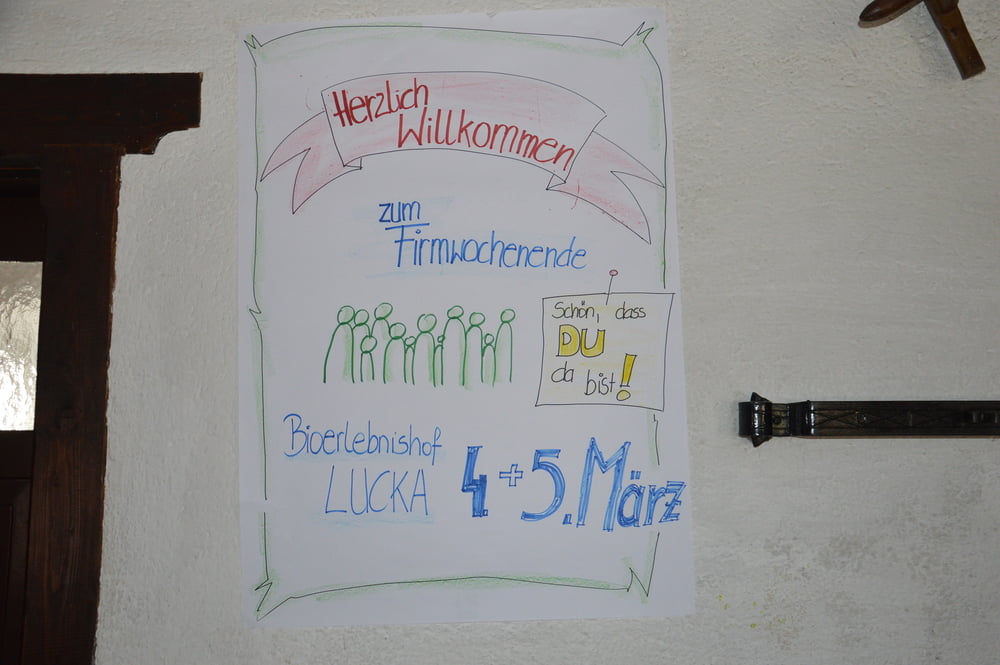 Herzlich
Willkommen
zum
Firmwochenende
Schön, dass
DU
da bist!
Bioerlebnishof
LUCKA
4.+5. März